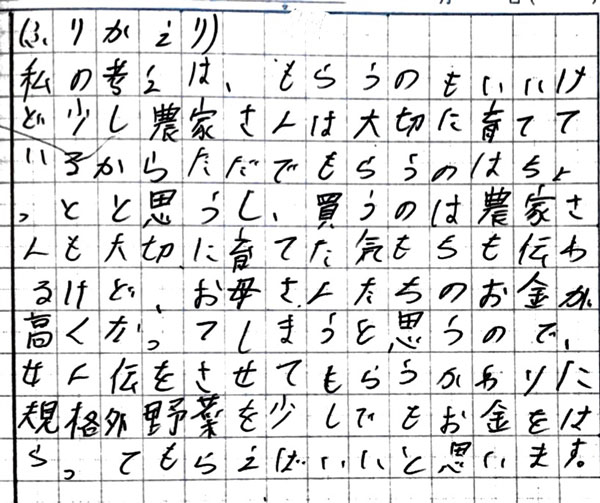 (ふりかえり)
私の考えは、もらうのもいいけ
ど少し農家さんは大切に育てて
いるからただでもらうのはちょ
っとと思うし、買うのは農家さ
んも大切に育てた気もちも伝わ
るけど、お母さんたちのお金が
高くなってしまうと思うので、
せん伝をさせてもらうかわりに
規格外野菜を少しでもお金をは
らってもらえばいいと思います。